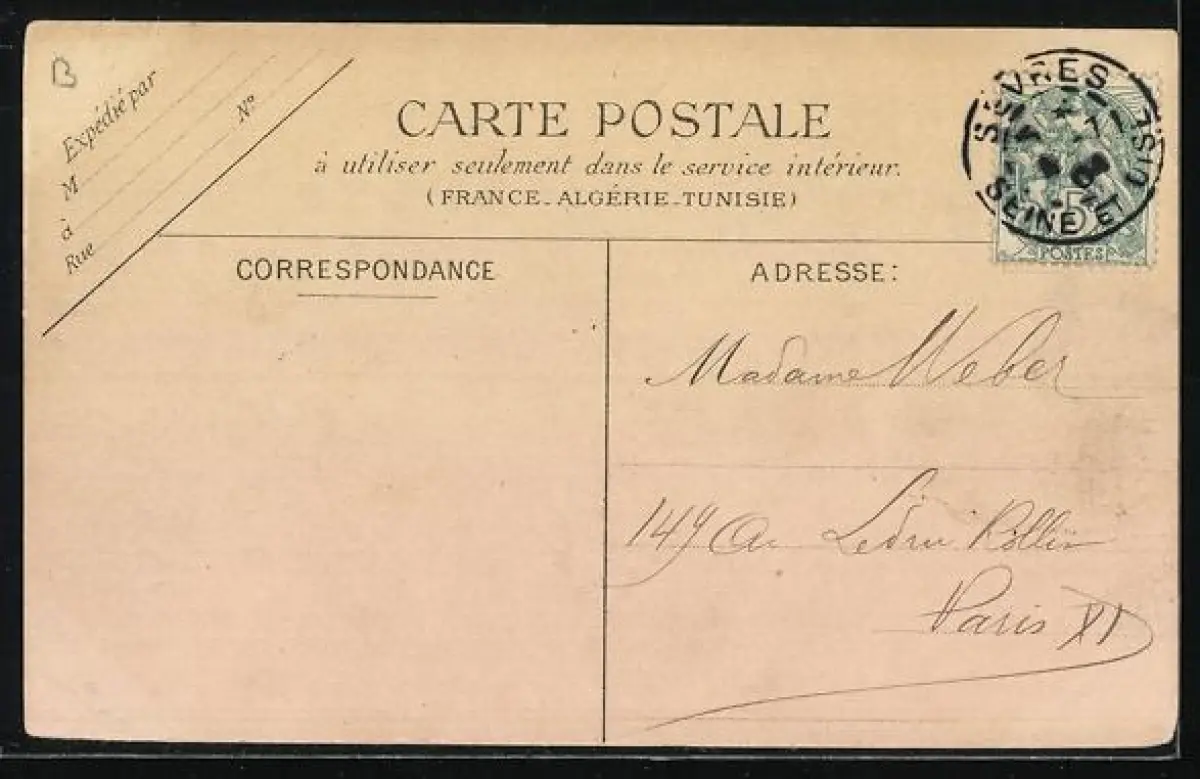 B
Expédié par
M
N°
à
Rue
CARTE POSTALE
à utiliser seulement dans le service intérieur.
(FRANCE-ALGÉRIE-TUNISIE)
SÈVRES
SEINE ET
5
POSTES
CORRESPONDANCE
ADRESSE:
Madame Weber
149 Av Ledru Rollin
Paris XI